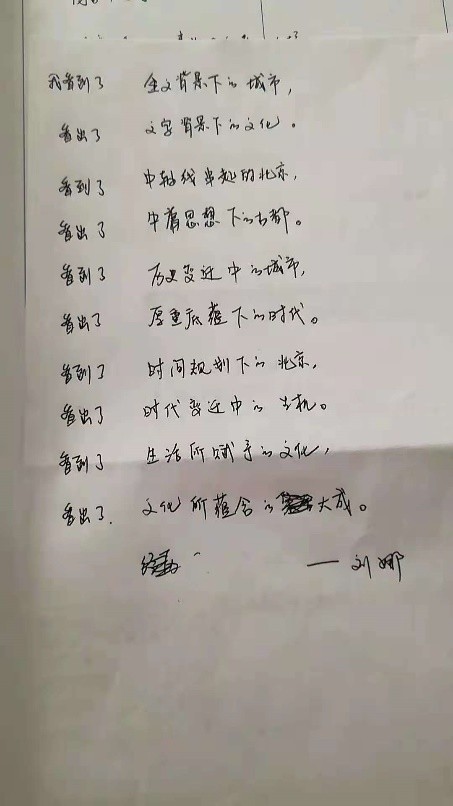 我看到了 金文背景下的城市，
看出了 文字背景下的文化。
看到了 中轴线串起的北京，
看出了 中庸思想下的古都。
看到了 历史变迁中的城市，
看出了 厚重底蕴下的时代。
看到了 时间规划下的北京，
看出了 时代变迁中的生机。
看到了 生活所赋予的文化，
看出了 文化所蕴含的大成。
——刘娜